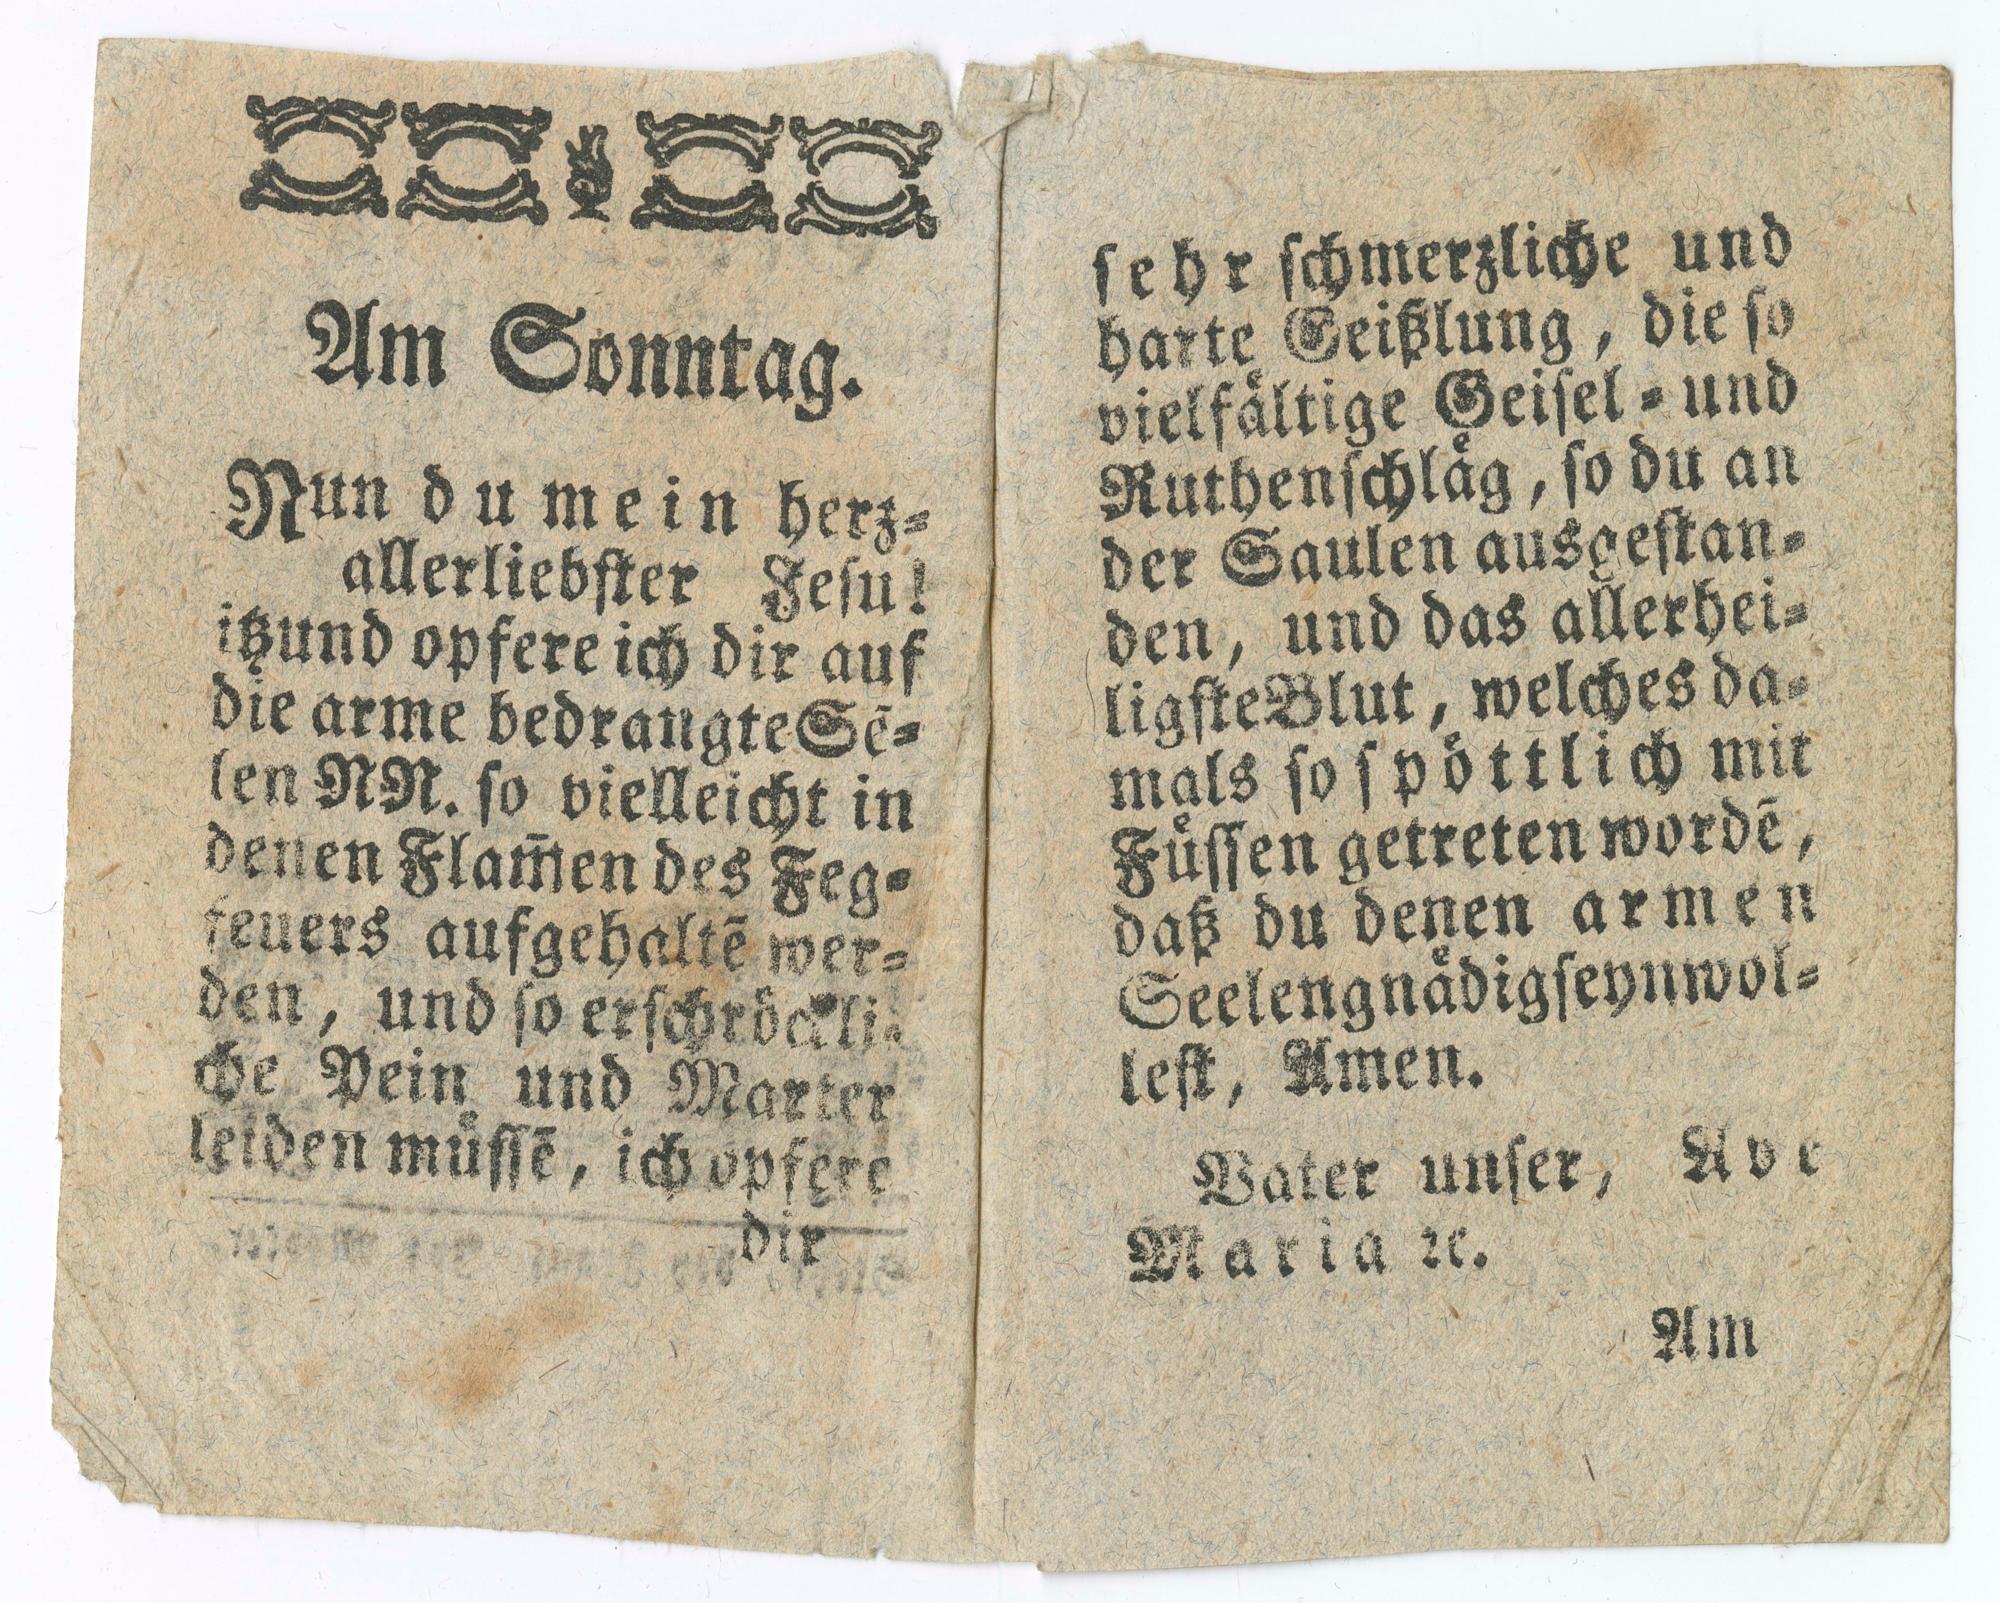 Am Sonntag.
Nun du mein herz-
allerliebſter Jeſu!
itzund opfere ich dir auf
die arme bedrangte See-
len NN. ſo vielleicht in
denen Flam̄en des Feg-
feuers aufgehaltē wer-
den, und ſo erſchröckli-
che Pein und Marter
leiden müſſē, ich opfere
dir
ſehr ſchmerzliche und
harte Geißlung, die ſo
vielfältige Geiſel- und
Ruthenſchläg, ſo du an
der Saulen ausgeſtan-
den, und das allerhei-
ligſte Blut, welches da-
mals ſo ſpöttlich mit
Füſſen getreten wordē,
daß du denen armen
Seelen gnädig ſeyn wol-
leſt, Amen.
Vater unſer, Ave
Maria ꝛc.
Am